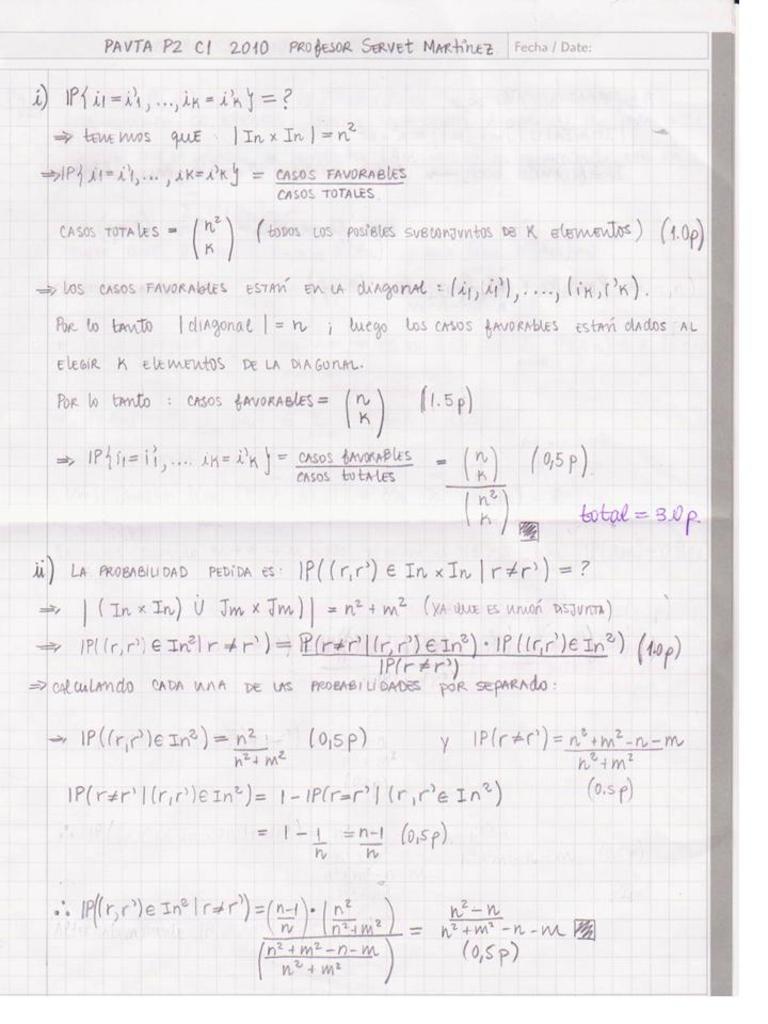 PAUTA P2 C1 2010 PROFESOR SERVET MARTÍNEZ Fecha / Date:
i) IP{i1=i'1, ..., ik=i'k} = ?
⇒ tenemos que |In × In| = n²
⇒ IP{i1=i'1, ..., ik=i'k} = CASOS FAVORABLES / CASOS TOTALES
CASOS TOTALES = (n² K) (todos los posibles subconjuntos de K elementos) (1.0p)
⇒ LOS CASOS FAVORABLES ESTAN EN LA diagonal = (i1, i1'), ...., (ik, i'k).
Por lo tanto |diagonal| = n ; luego los casos favorables están dados AL
ELEGIR K ELEMENTOS DE LA DIAGONAL.
Por lo tanto : CASOS FAVORABLES = (n K) (1.5p)
⇒ IP{i1=i'1, .... ik=i'k} = CASOS FAVORABLES / CASOS TOTALES = (n K) / (n² K) (0,5p)
total = 3.0p.
ii) LA PROBABILIDAD PEDIDA ES: IP((r,r') ∈ In × In | r≠r') = ?
⇒ |(In × In) U̇ Jm × Jm)| = n² + m² (YA QUE ES UNIÓN DISJUNTA)
⇒ IP((r,r') ∈ In² | r ≠ r') = IP(r≠r' | (r,r') ∈ In²) · IP((r,r') ∈ In²) / IP(r≠r') (1.0p)
⇒ CALCULANDO CADA UNA DE LAS PROBABILIDADES POR SEPARADO:
→ IP((r,r') ∈ In²) = n² / n²+m² (0,5p) y IP(r≠r') = n²+m²-n-m / n²+m² (0.5p)
IP(r≠r' | (r,r') ∈ In²) = 1 - IP(r=r' | (r,r' ∈ In²)
= 1 - 1/n = n-1/n (0,5p)
∴ IP((r,r') ∈ In² | r≠r') = (n-1/n) · (n²/n²+m²) / (n²+m²-n-m / n²+m²) = n²-n / n²+m²-n-m (0,5p)